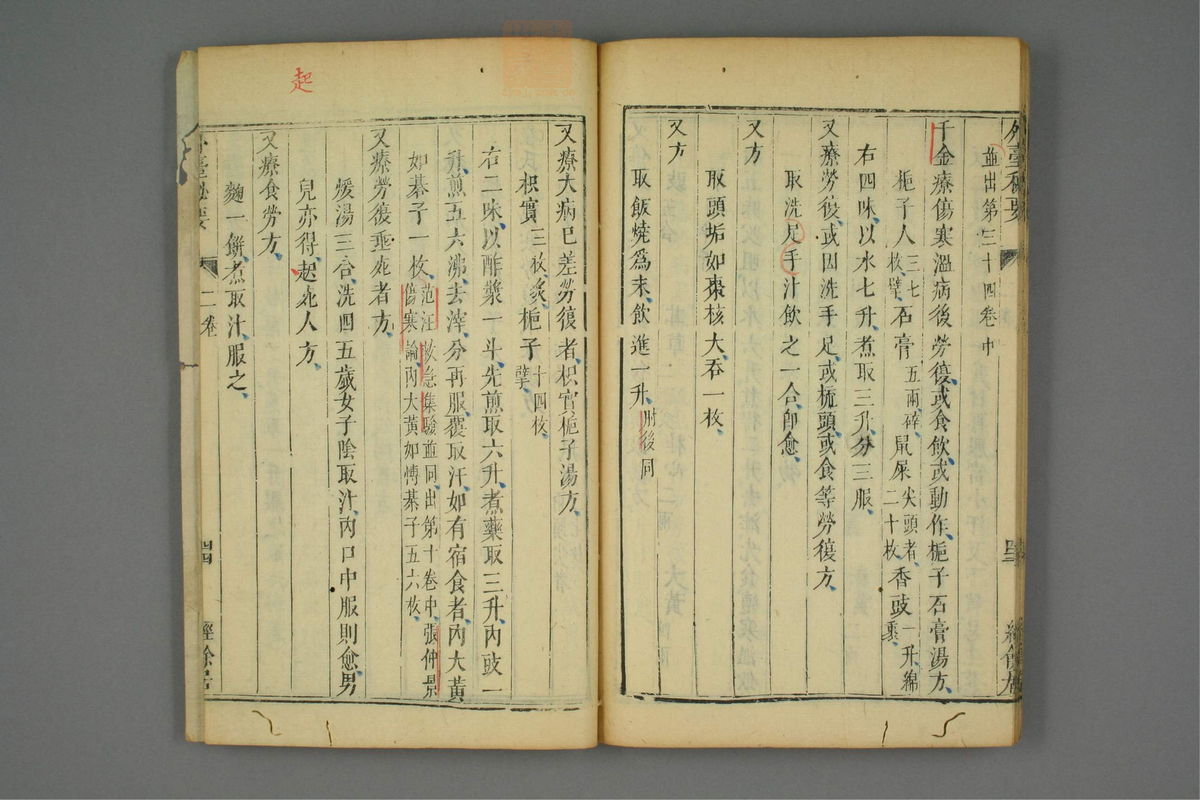 外臺秘要
並出第三十四卷中
千金療傷寒溫病後勞復或食飲或動作梔子石膏湯方
梔子人三七枚擘石膏五兩碎鼠屎尖頭者二十枚香豉一升綿裹
右四味以水七升煮取三升分三服
又療勞復或因洗手足或梳頭或食等勞復方
取洗足手汁飲之一合卽愈
又方
取頭垢如棗核大吞一枚
又方
取飯燒爲末飲進一升肘後同
又療大病已差勞復者枳實梔子湯方
枳實三枚炙梔子十四枚擘
右二味以酢漿一斗先煎取六升煮藥取三升內豉一
升煎五六沸去滓分再服覆取汗如有宿食者內大黃
如碁子一枚范汪救急集驗並同出第十卷中張仲景傷寒論內大黃如博碁子五六枚
又療勞復垂死者方
煖湯三合洗四五歲女子陰取汁內口中服則愈男
兒亦得起死人方
又療食勞方
麴一餅煮取汁服之
外臺秘要
二卷
四四
經餘居
起